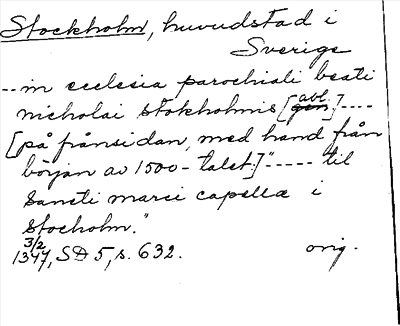 Stockholm, huvudstad i
Sverige
--- in ecclesia parochiali beati
nicholai stokholmis [abl.] -----
[på frånsidan, med hand från
början av 1500-talet:] "----- til
Sancti marci capellæ i
stocholm."
3/2
1347, SD 5, s. 632. orig.